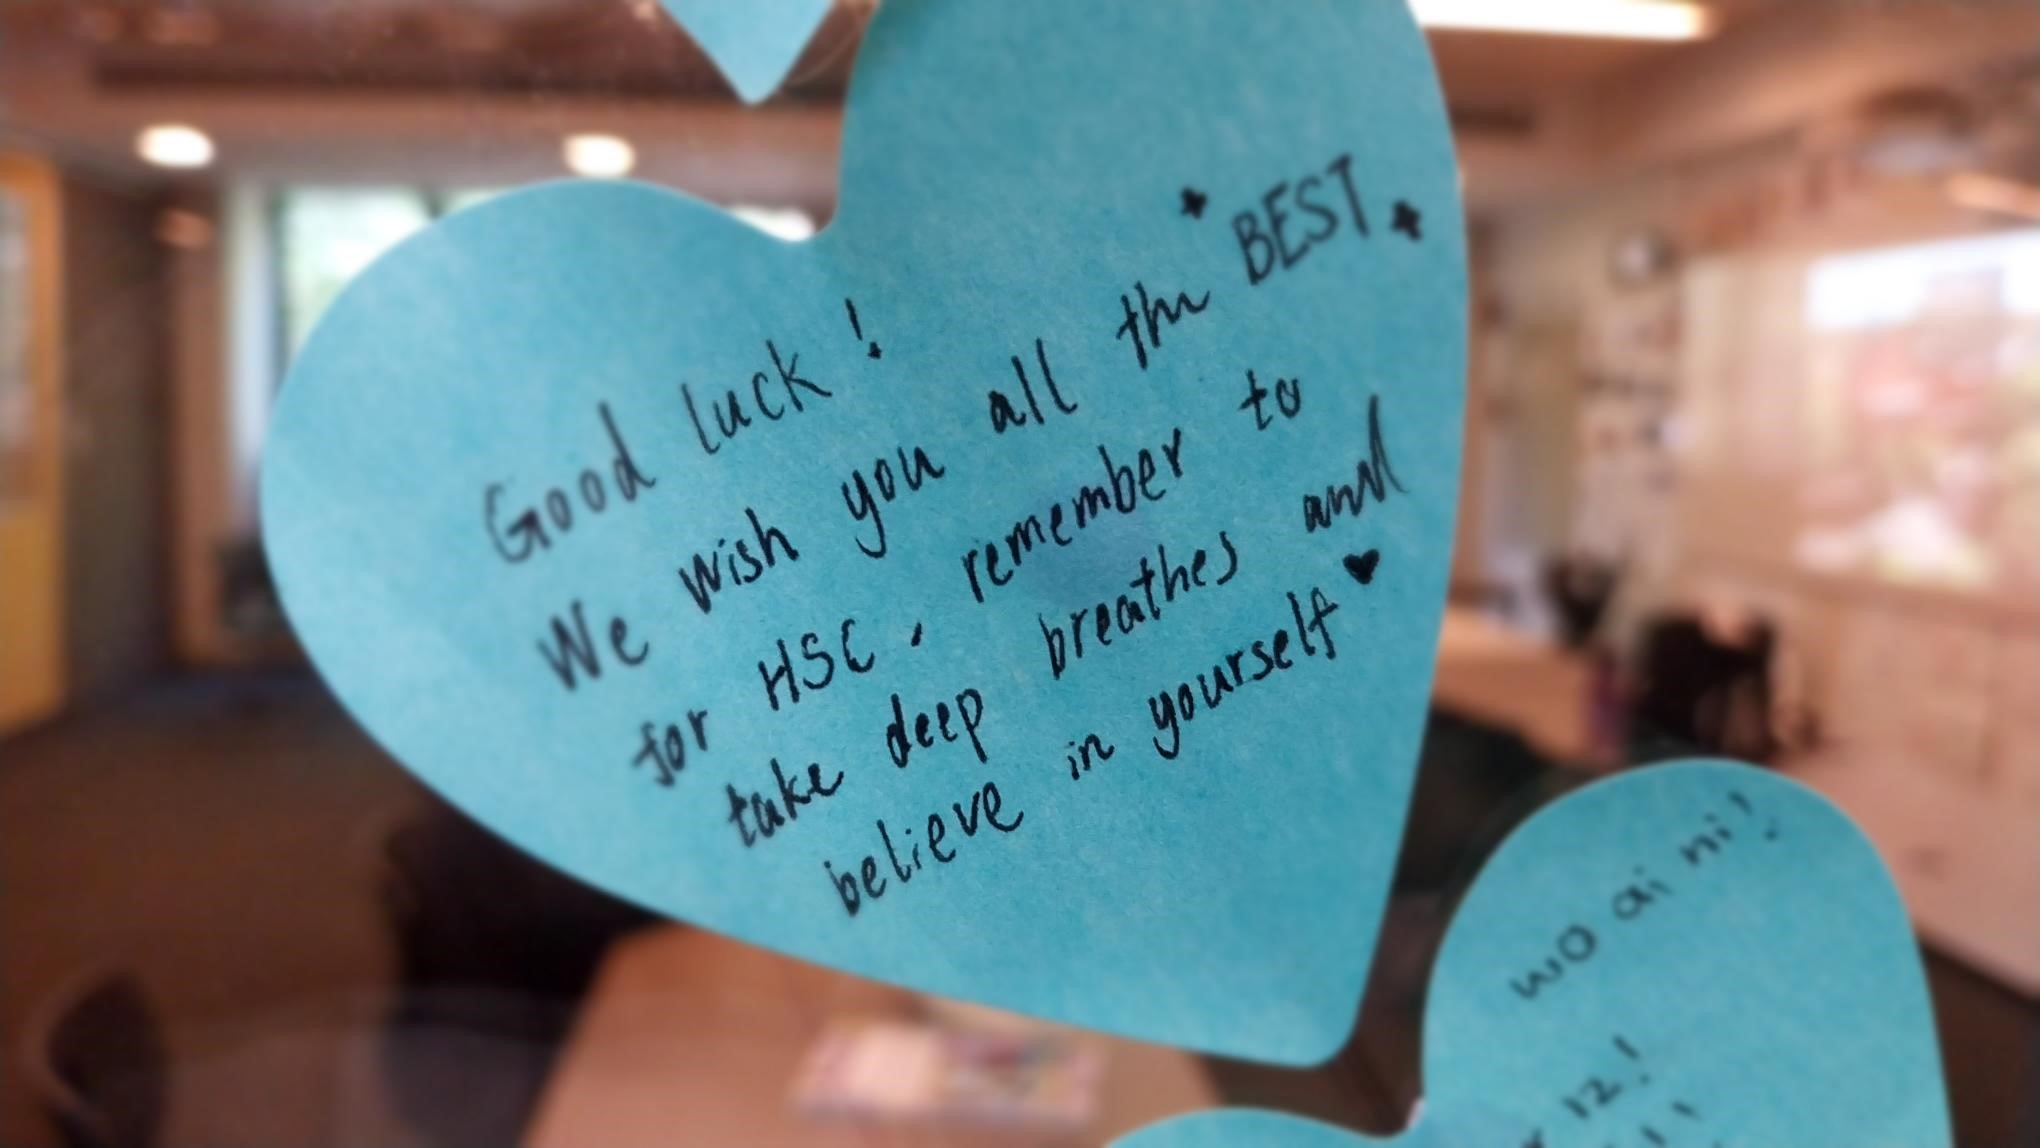 Good luck!
We wish you all the BEST
for HSC, remember to
take deep breathes and
believe in yourself ♥
wo ai ni!
r 12!